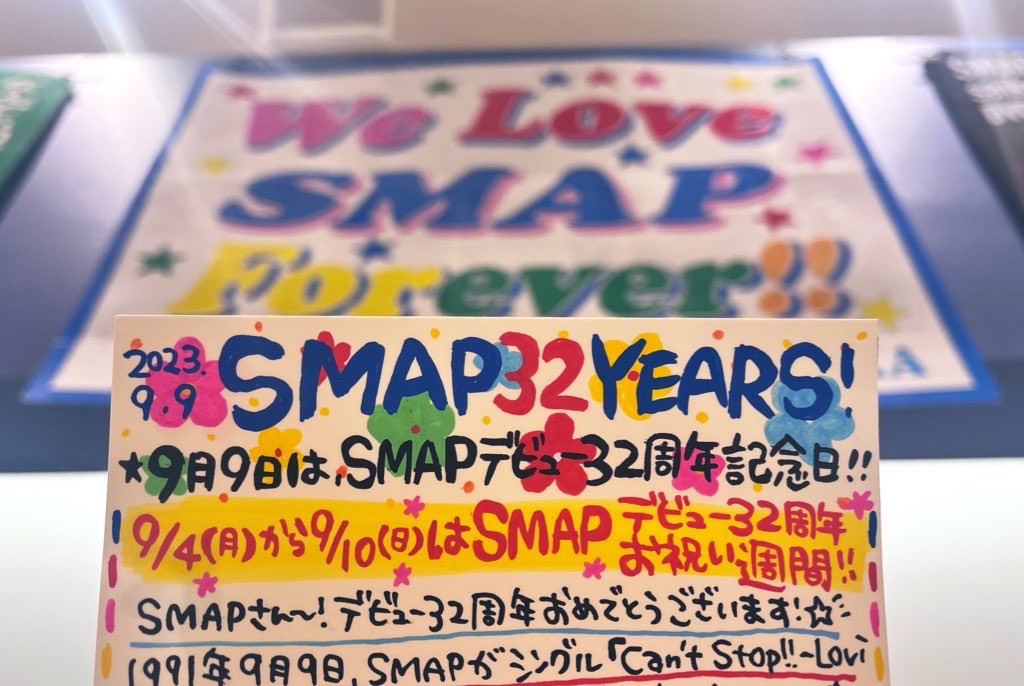 We Love
SMAP
Forever!!
2023.
9.9
SMAP32YEARS!
★9月9日は、SMAPデビュー32周年記念日!!
9/4(月)から9/10(日)はSMAP デビュー32周年
お祝い週間!!
SMAPさん〜!デビュー32周年おめでとうございます!☆
1991年9月9日、SMAPがシングル「Can't Stop!!-Lovi